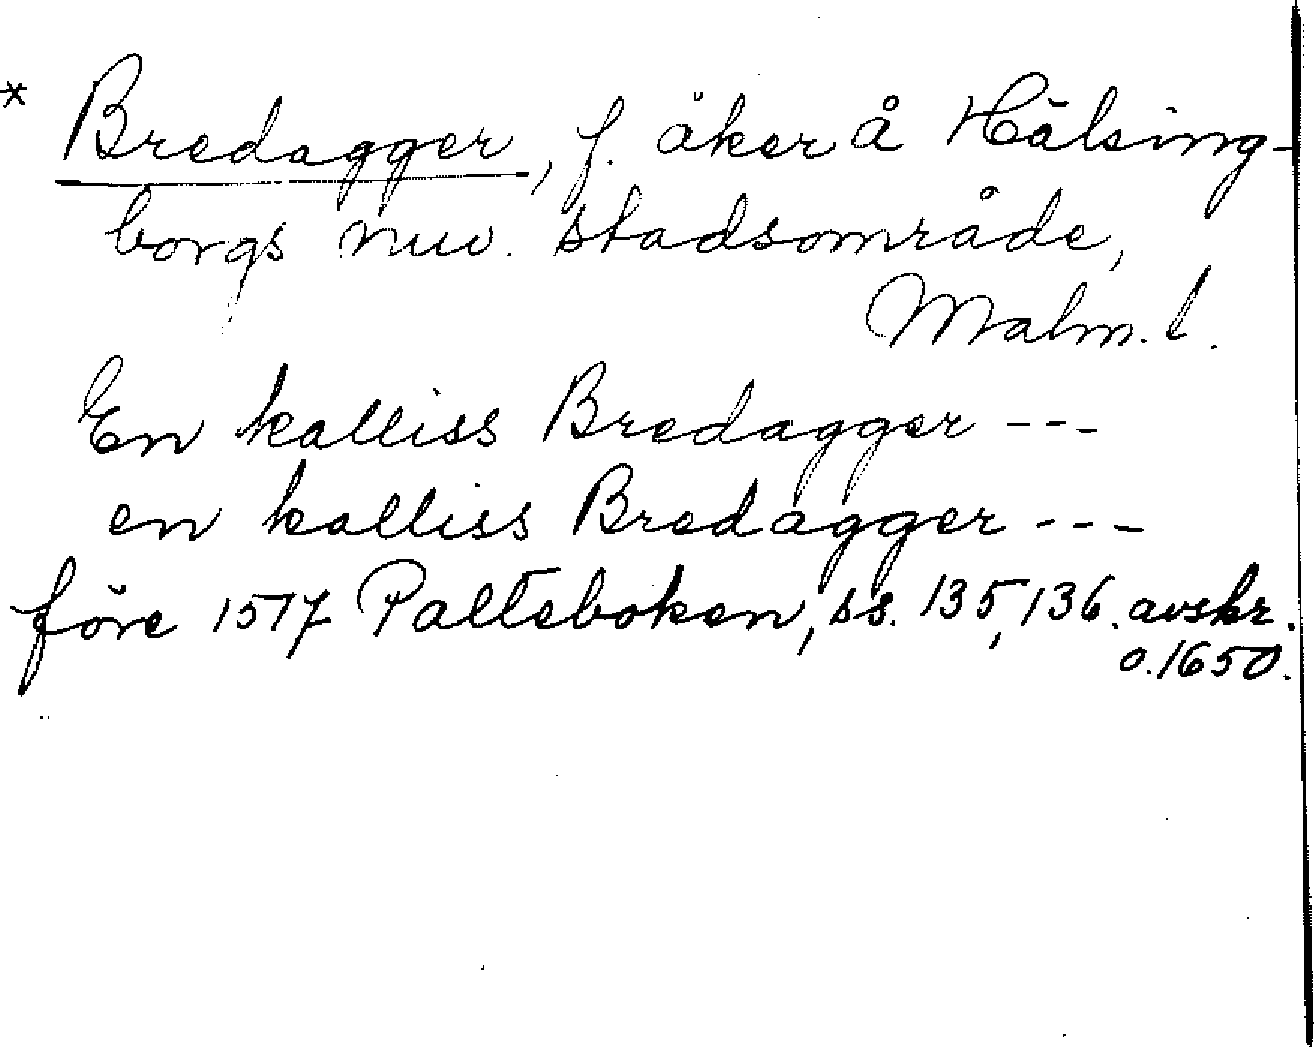 * Bredagger, f. åker å Hälsing-
borgs nuv. stadsområde,
Malm. l.
En kalliss Bredagger ---
en kalliss Bredagger ---
före 1517 Palteboken, ss. 135, 136. avskr.
o. 1650.